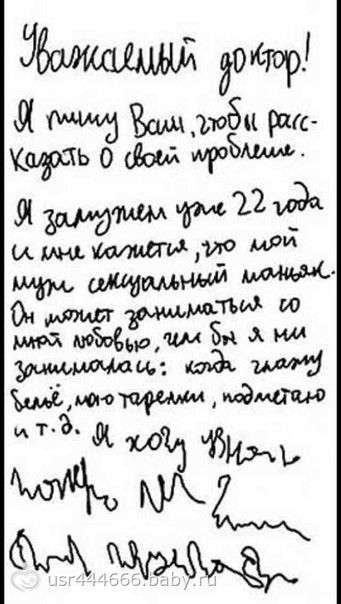 Уважаемый доктор!
Я пишу Вам, чтобы расс-
казать о своей проблеме.
Я замужем уже 22 года
и мне кажется, что мой
муж сексуальный маньяк.
Он может заниматься со
мной любовью, чем бы я ни
занималась: когда глажу
бельё, мою тарелки, подметаю
и т.д. Я хочу узнать
usr444666.baby.ru